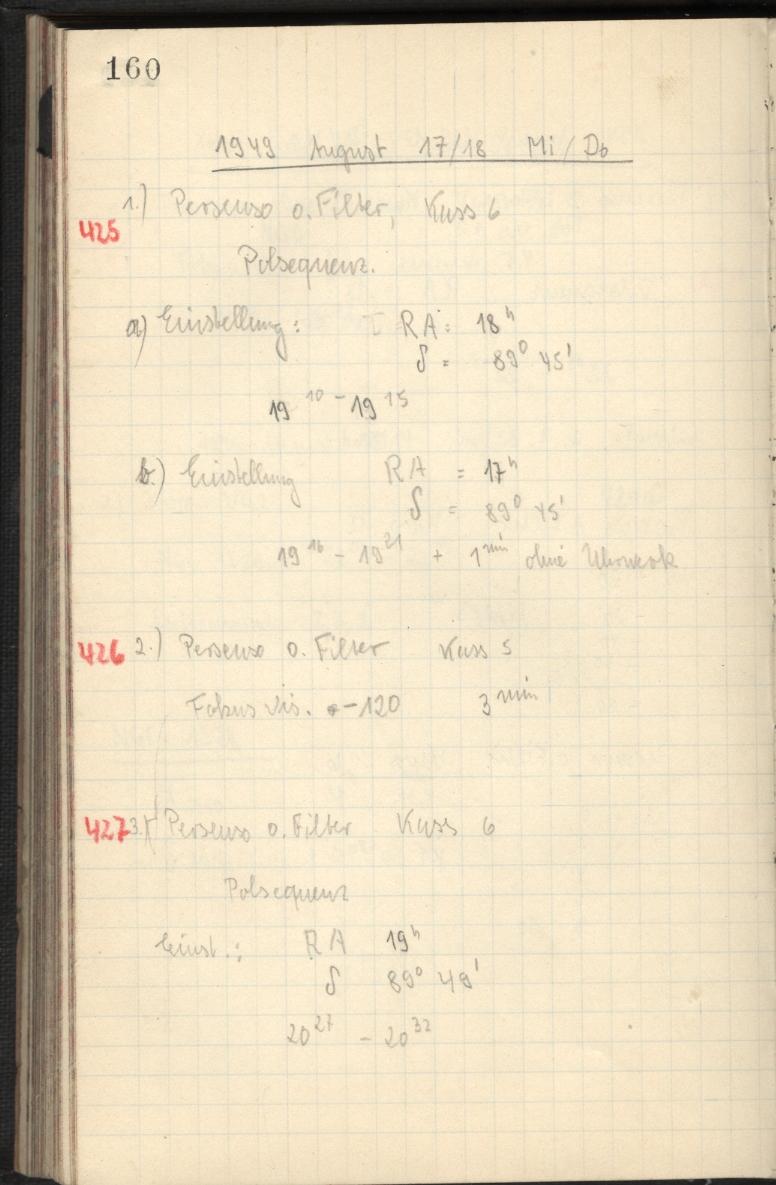 160
1949 August 17/18 Mi/Do
425 1.) Persenso o. Filter, Kass 6
Polsequenz.
a) Einstellung: RA = 18h
δ = 89° 45'
19 10 - 19 15
b.) Einstellung RA = 17h
δ = 89° 45'
19 16 - 19 21 + 1 min ohne Uhrwerk
426 2.) Persenso o. Filter Kass 5
Fokus vis. -120 3 min
427 3.) Persenso o. Filter Kass 6
Polsequenz
Einst.: RA 19h
δ 89° 49'
20 27 - 20 32